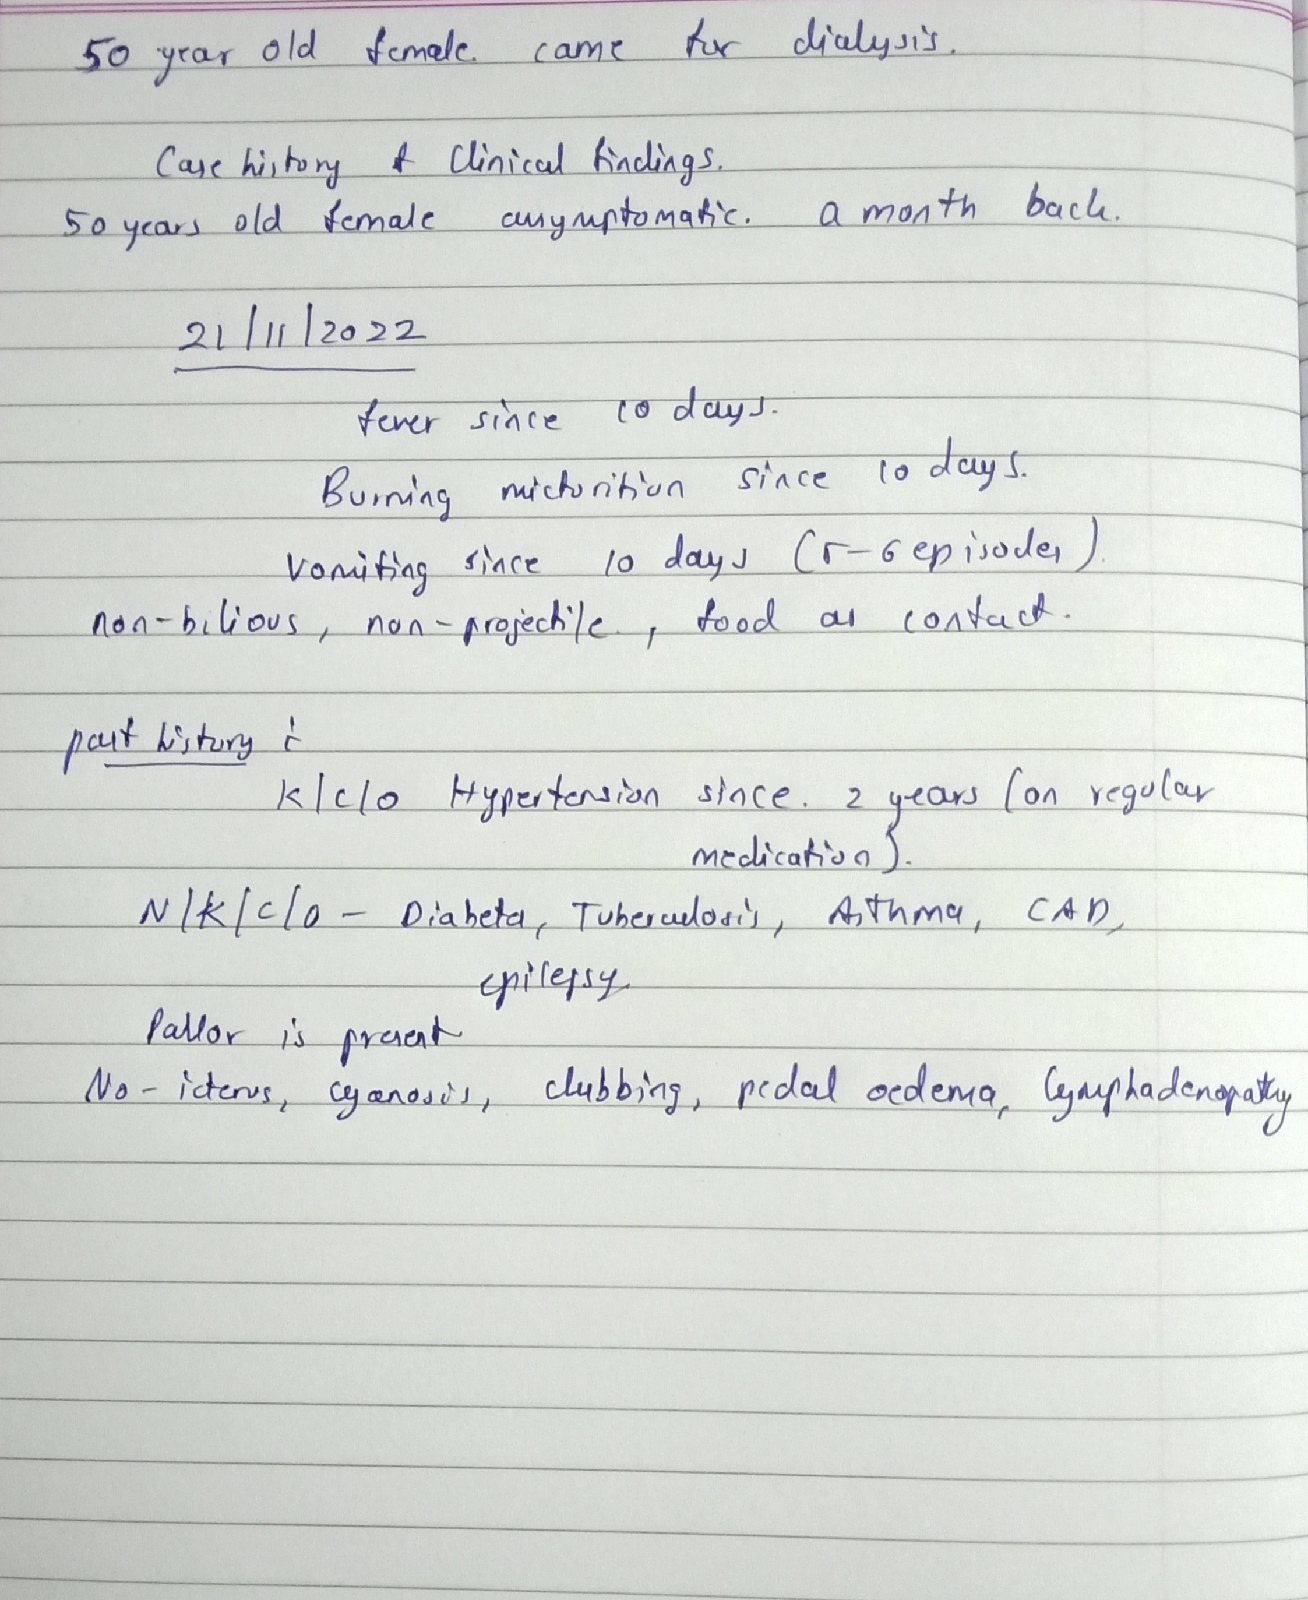 50 year old female came for dialysis.
Case history & Clinical findings.
50 years old female asymptomatic. a month back.
21/11/2022
fever since 10 days.
Burning micturition since 10 days.
Vomiting since 10 days (5-6 episodes).
non-bilious, non-projectile, food as contact.
past history :
K/c/o Hypertension since. 2 years (on regular
medication).
N/K/c/o - Diabetes, Tuberculosis, Asthma, CAD,
epilepsy
Pallor is present
No - icterus, cyanosis, clubbing, pedal oedema, lymphadenopathy